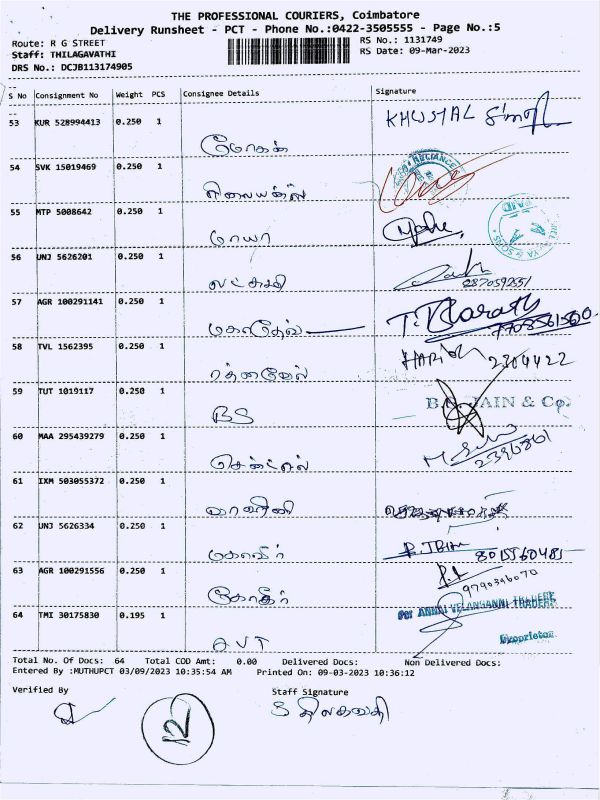 THE PROFESSIONAL COURIERS, Coimbatore
Delivery Runsheet - PCT - Phone No.:0422-3505555 - Page No.:5
Route: R G STREET
RS No.: 1131749
Staff: THILAGAVATHI
RS Date: 09-Mar-2023
DRS No.: DCJB113174905
S No Consignment No Weight PCS Consignee Details Signature
53 KUR 528994413 0.250 1 மோகன் KHUSHAL
54 SVK 15019469 0.250 1 ரிலையன்ஸ் RELIANCE
55 MTP 5008642 0.250 1 மாயா
56 UNJ 5626201 0.250 1 லட்சுமி
57 AGR 100291141 0.250 1 மகாதேவ் T. Bharath 7708561560
58 TVL 1562395 0.250 1 ரத்னவேல் HARISH 2304422
59 TUT 1019117 0.250 1 BS JAIN & Co.
60 MAA 295439279 0.250 1 சென்ட்ரல் 2396861
61 IXM 503055372 0.250 1
62 UNJ 5626334 0.250 1 மகாவீர்
63 AGR 100291556 0.250 1 9790396070
64 TMI 30175830 0.195 1 AVT For ANNAI VELANGANNI TRADERS
Proprietor
Total No. Of Docs: 64 Total COD Amt: 0.00 Delivered Docs: Non Delivered Docs:
Entered By :MUTHUPCT 03/09/2023 10:35:54 AM Printed On: 09-03-2023 10:36:12
Verified By Staff Signature
12 S திலகவதி